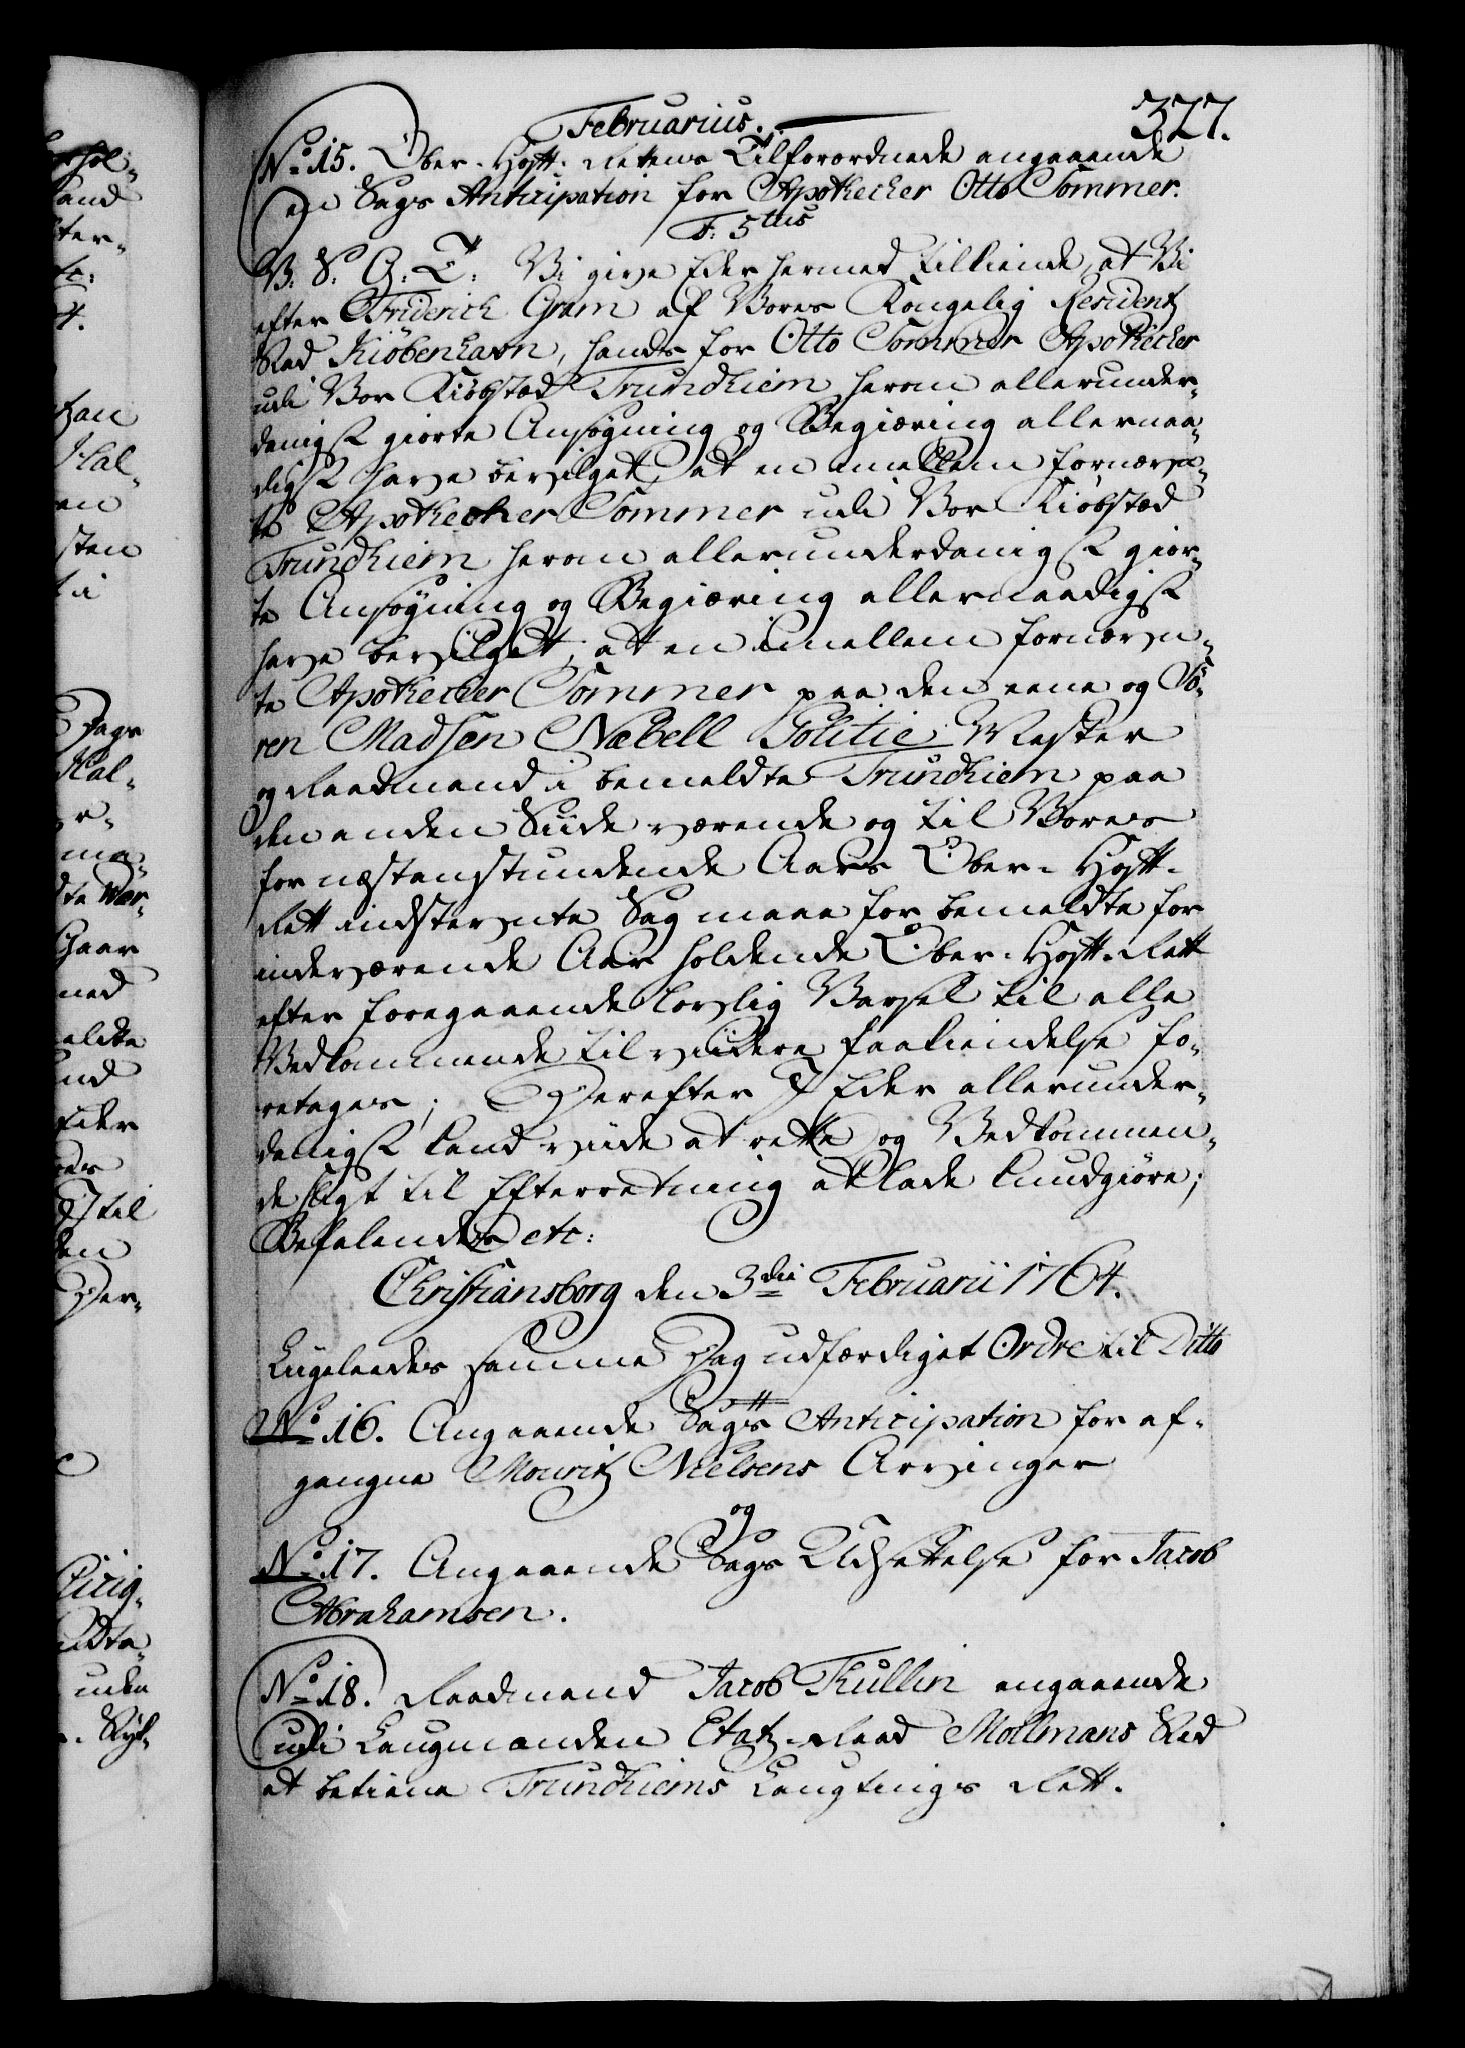 Februarius.
327.
No 15. Ober-Hoff-Rettens Tilforordnede angaaende
en Sags Anticipation for Apothecker Otto Sommer.
F: 5tus
V: S: G: T: Vi give Eder hermed tilkiende, at Vi
efter Friderich Gram af Vores Kongelig Residentz
Stad Kiøbenhavn, hands for Otto Sommer Apothecker
udi Vor Kiøbstæd Trundhiem herom allerunder-
danigst giorte Ansøgning og Begiæring allernaa-
digst have bevilget, at en imellem fornævn-
te Apothecker Sommer udi Vor Kiøbstæd
Trundhiem herom allerunderdanigst gior-
te Ansøgning og Begiæring allernaadigst
have bevilget; at en imellem fornævn-
te Apothecker Sommer paa den eene og Sö-
ren Madsen Næbell Politie-Mester
og Raadmand i bemeldte Trundhiem paa
den anden Siide værende og til Vores
for næstanstundende Aars Ober-Hoff-
Rett indstevnte Sag maae for bemeldte for
indeværende Aar holdende Ober-Hoff-Rett
efter foregaaende lovlig Varsel til alle
Vedkommende til viidere Paakiendelse fo-
retages; Derefter I Eder allerunder-
danigst kand viide at rette og Vedkommen-
de sligt til Efterretning at lade kundgiøre;
Befalendes etc:
Christiansborg den 3die Februarii 1764.
Ligeleedes samme Dag udfærdiget Ordre til Ditto
No 16. Angaaende Sags Anticipation for af-
gangne Mouritz Nielsens Arvinger
og
No 17. Angaaende Sags Udsettelse for Jacob
Abrahamsen.
No 18. Raadmand Jacob Thullin angaaende
udi Laugmanden Etatz-Raad Mollmans Sted
at betiene Trundhiems Laugtings Rett.